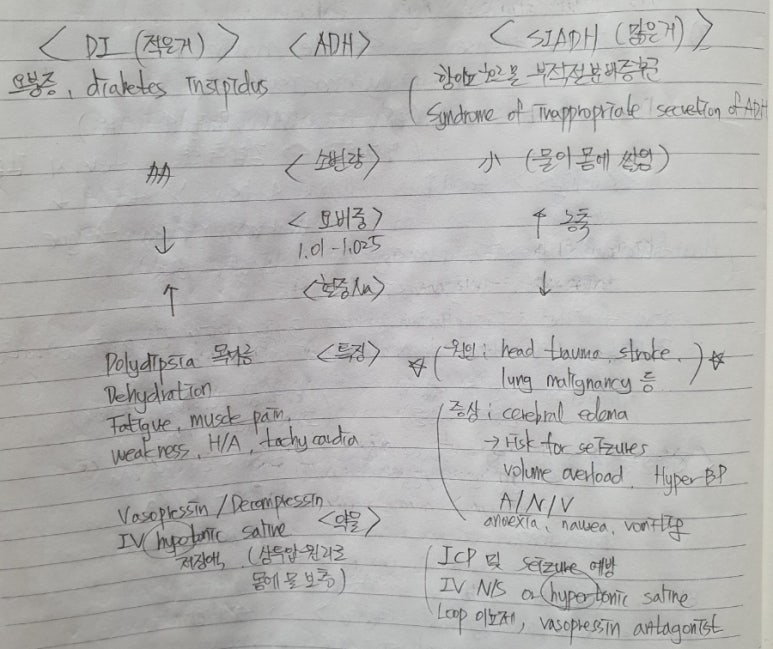 < DI (적은거) > < ADH > < SIADH (많은거) >
요붕증, diabetes insipidus
항이뇨호르몬 부적절분비증후군
Syndrome of inappropriate secretion of ADH
<소변량> 小 (물이 몸에 쌓임)
↓ <요비중> ↑ 농축
1.01 ~ 1.025
↑ <혈중Na> ↓
Polydipsia 목마름 <특징> ☆ (원인 : head trauma, stroke, ) ☆
Dehydration lung malignancy 등
Fatigue, muscle pain, 증상 : cerebral edema
weakness, H/A, tachycardia → risk for seizures
volume overload, Hyper BP
A/N/V
anorexia, nausea, vomiting
Vasopressin / Decompressin <약물>
IV hypotonic saline
저장액, (삼투압 원리로
몸에 물 보충)
ICP 및 seizure 예방
IV N/S or hypertonic saline
Loop 이뇨제, vasopressin antagonist